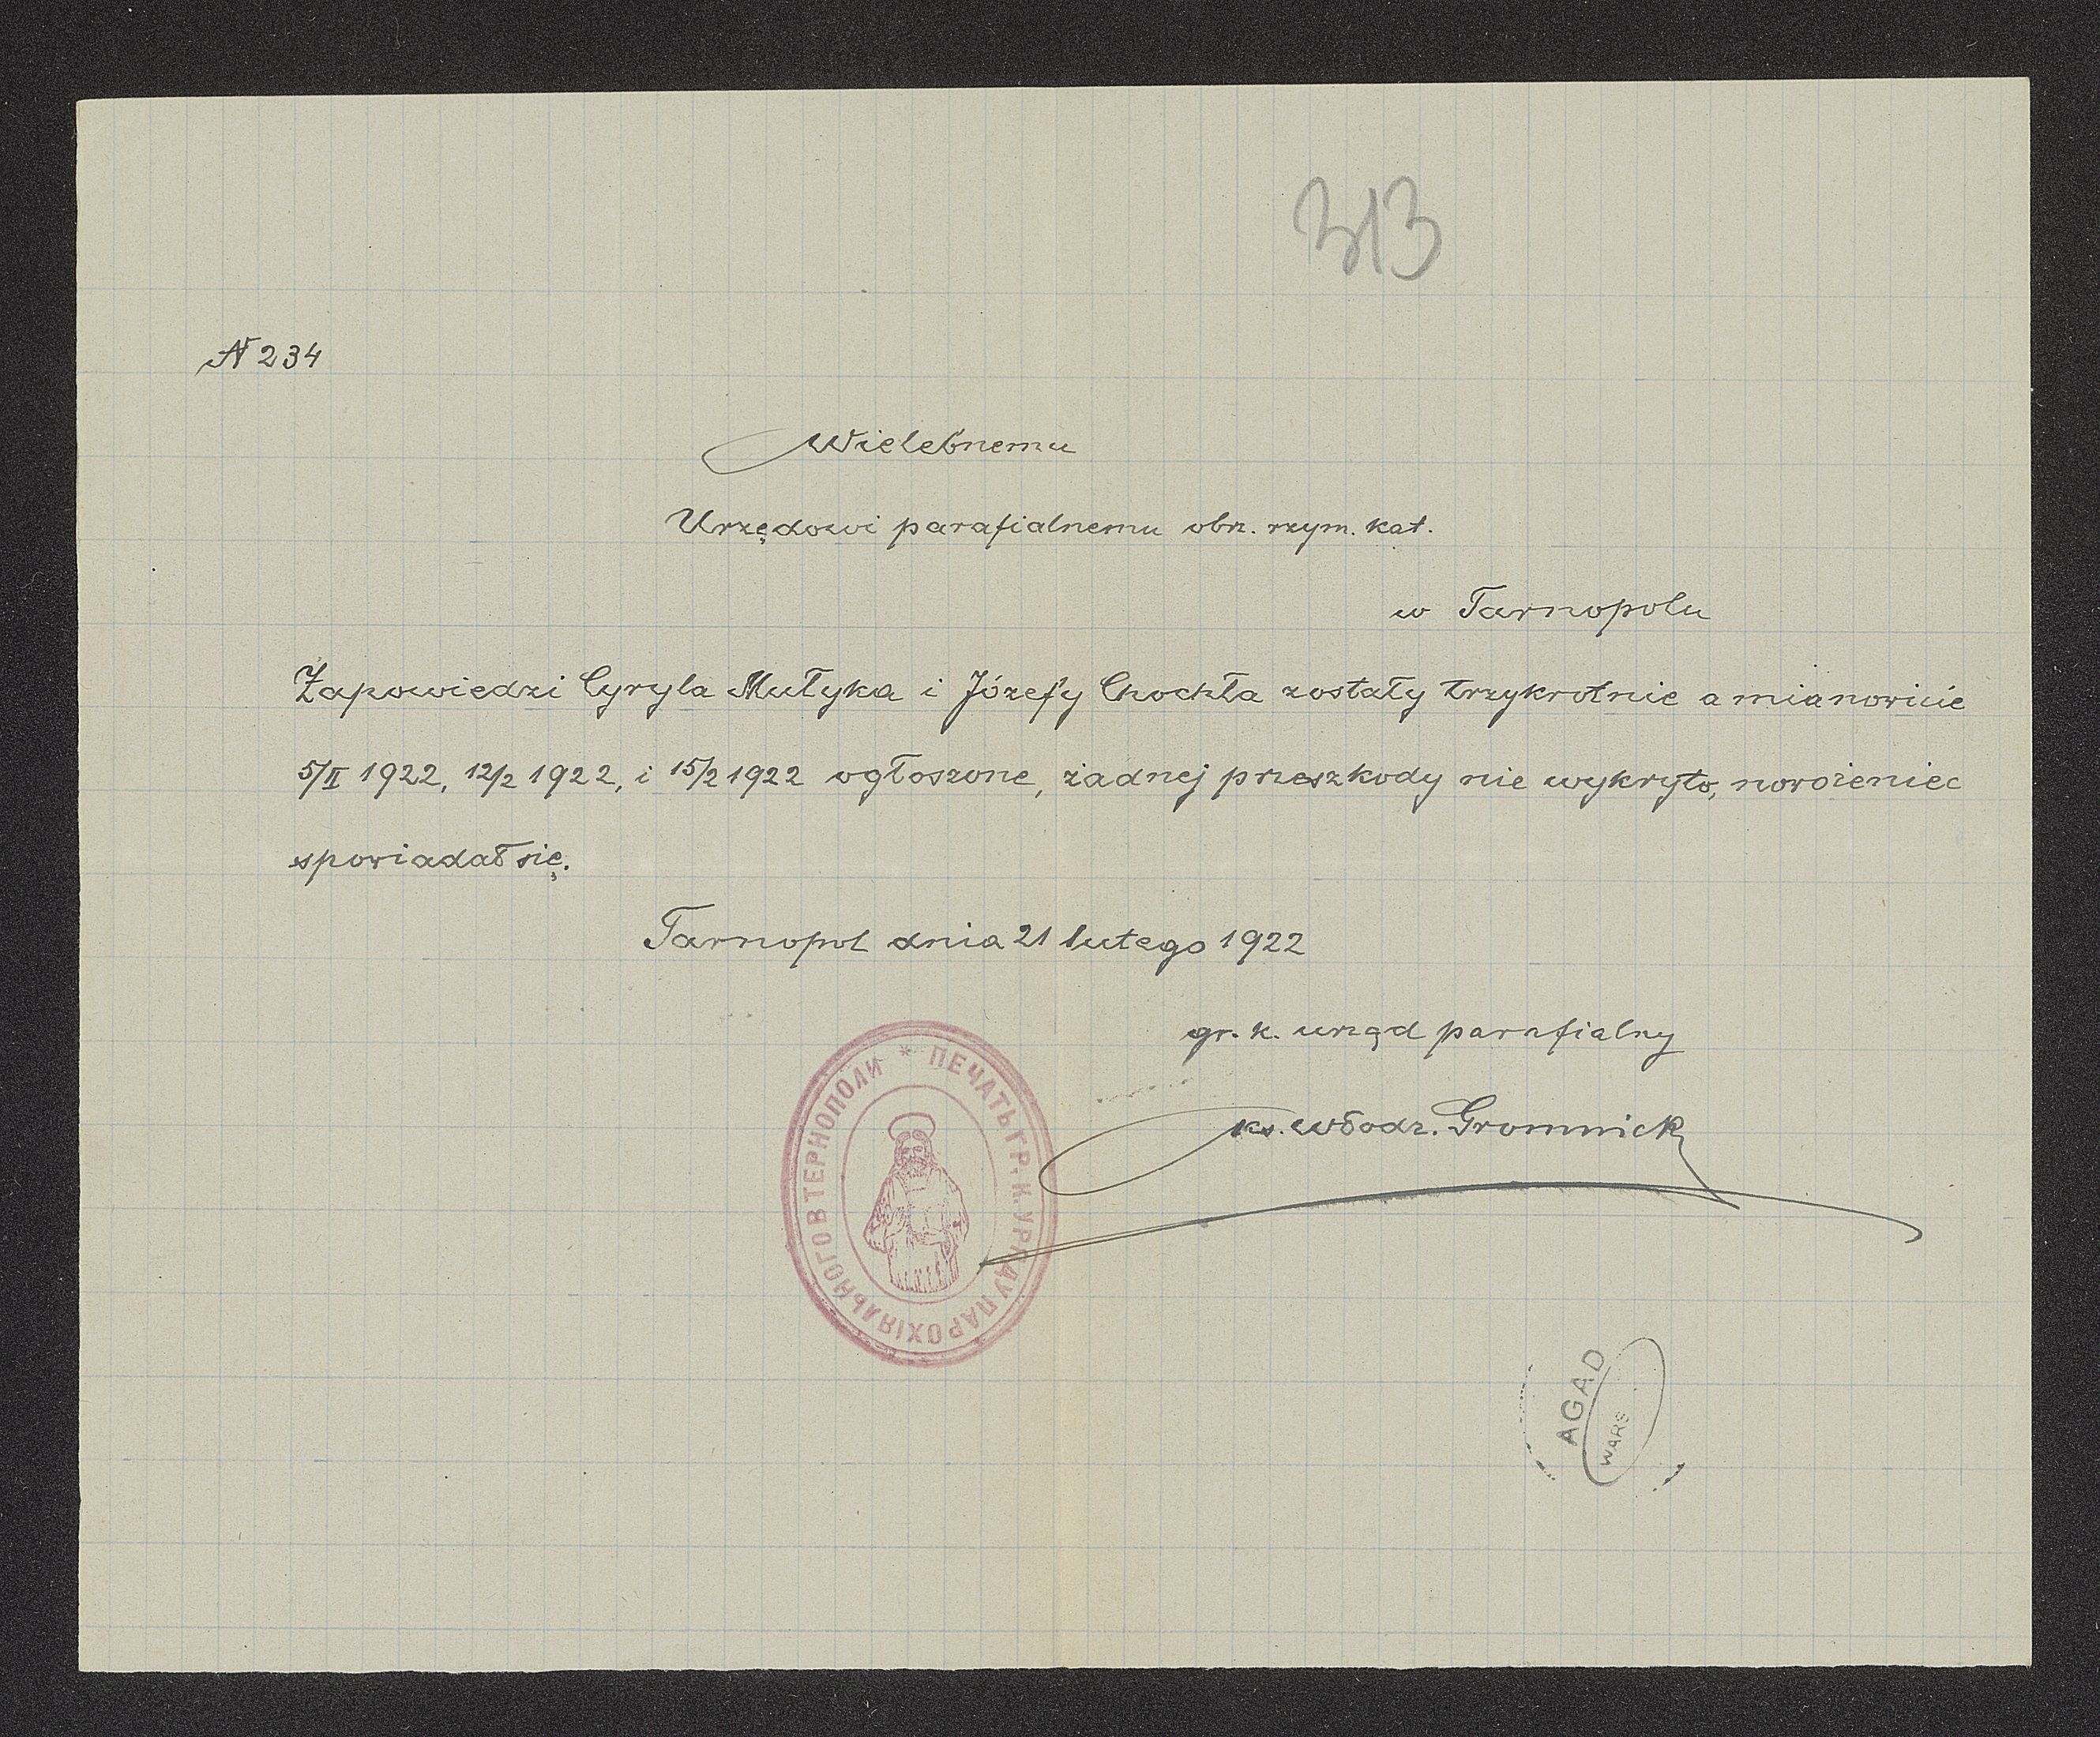 313
N 234
Wielebnemu
Urzędowi parafialnemu obrz. rzym. kat.
w Tarnopolu
Zapowiedzi Cyryla Mutyka i Józefy Chochła zostały trzykrotnie a mianowicie
5/II 1922, 12/2 1922, i 15/2 1922 ogłoszone, żadnej przeszkody nie wykryto, nowożeniec
spowiadał się.
Tarnopol dnia 21 lutego 1922
gr. k. urząd parafialny
ks. Włodz. Gromnicki
* ПЕЧАТЬ ГР. К. УРЯДУ ПАРОХІЯЛЬНОГО В ТЕРНОПОЛИ
AGAD
WARS